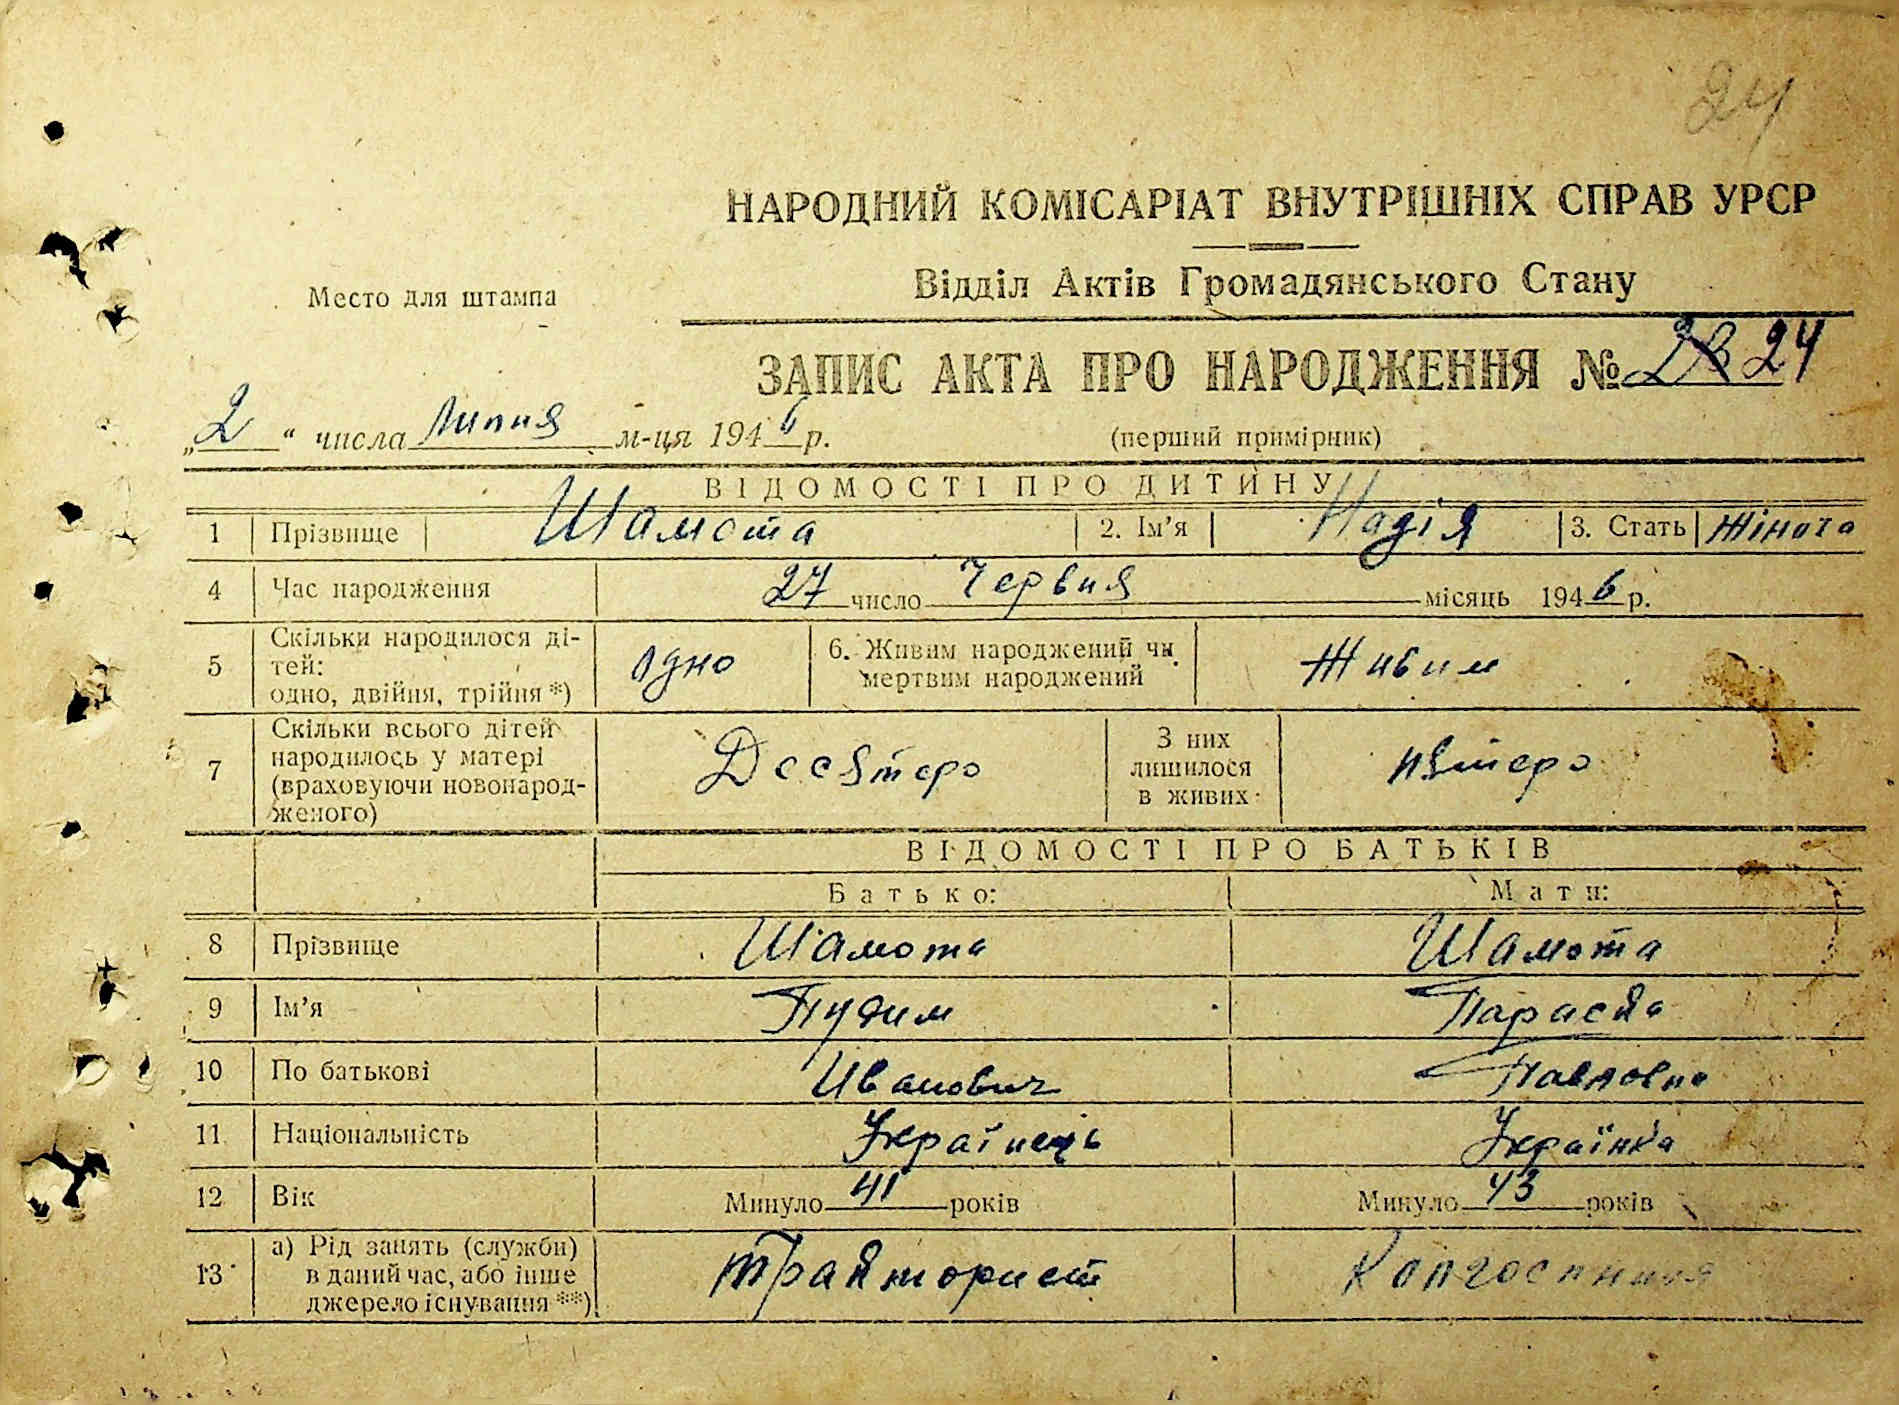 24
НАРОДНИЙ КОМІСАРІАТ ВНУТРІШНІХ СПРАВ УРСР
Место для штампа
Відділ Актів Громадянського Стану
ЗАПИС АКТА ПРО НАРОДЖЕННЯ № 24
„2“ числа Липня м-ця 1946 р.
(перший примірник)
ВІДОМОСТІ ПРО ДИТИНУ
1 Прізвище Шамота 2. Ім'я Надія 3. Стать Жіноча
4 Час народження 27 число Червня місяць 1946 р.
5 Скільки народилося ді-
тей:
одно, двійня, трійня *) одно 6. Живим народжений чи
мертвим народжений Живим
7 Скільки всього дітей
народилось у матері
(враховуючи новонарод-
женого) Десятеро З них
лишилося
в живих пятеро
ВІДОМОСТІ ПРО БАТЬКІВ
Батько: Мати:
8 Прізвище Шамота Шамота
9 Ім'я Параска
10 По батькові Иванович Павловна
11 Національність Українець Українка
12 Вік Минуло 41 років Минуло 43 років
13 а) Рід занять (служби)
в даний час, або інше
джерело існування **) тракторист Колгоспниця